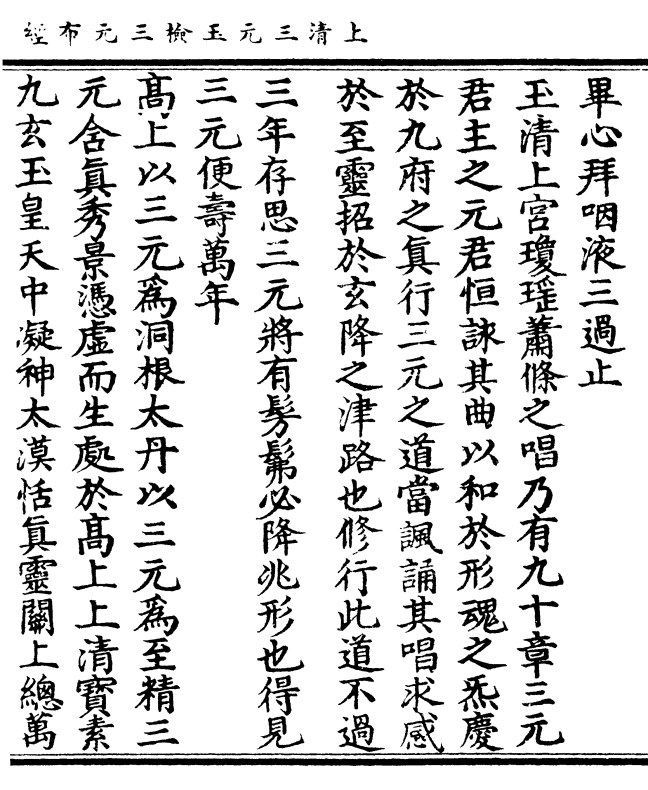 上清三元玉檢三元布經
畢心拜咽液三過止
玉清上宮瓊瑤蕭條之唱乃有九十章三元
君主之元君恒詠其曲以和於形魂之炁慶
於九府之眞行三元之道當諷誦其唱求感
於至靈招於玄降之津路也修行此道不過
三年存思三元將有髣髴必降兆形也得見
三元便壽萬年
髙上以三元爲洞根太丹以三元爲至精三
元含眞秀景憑虛而生處於髙上上清寶素
九玄玉皇天中凝神太漠恬眞靈關上總萬